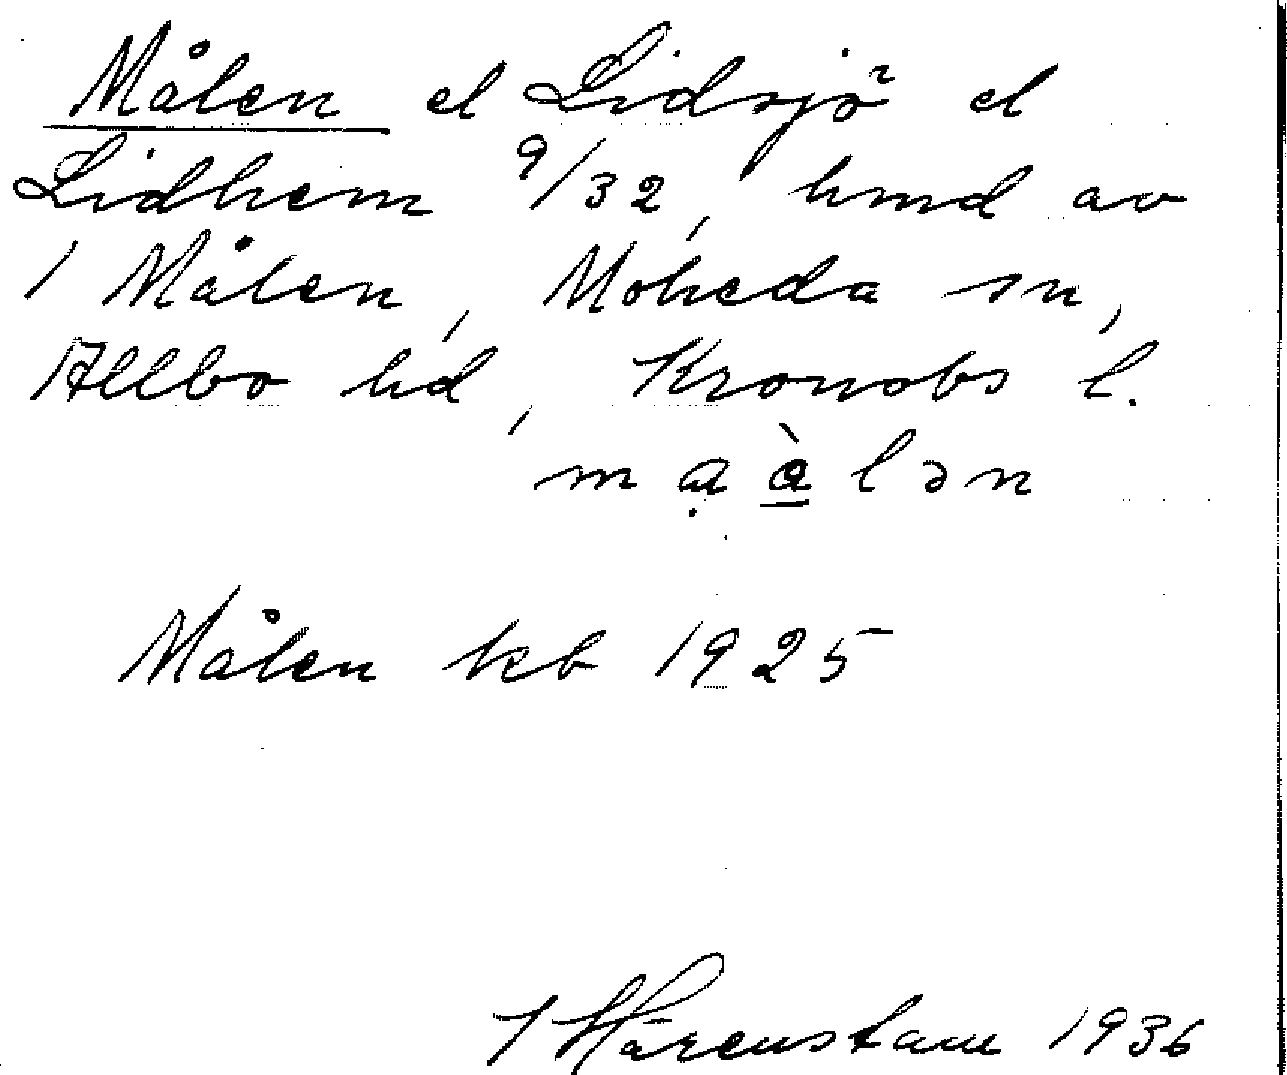 Målen el Lidsjö el
Lidhem 9/32, hmd av
1 Målen, Moheda sn,
Allbo hd, Kronobs l.
mạ å̲̀ lən
Målen kb 1925
J Hårenstam 1936